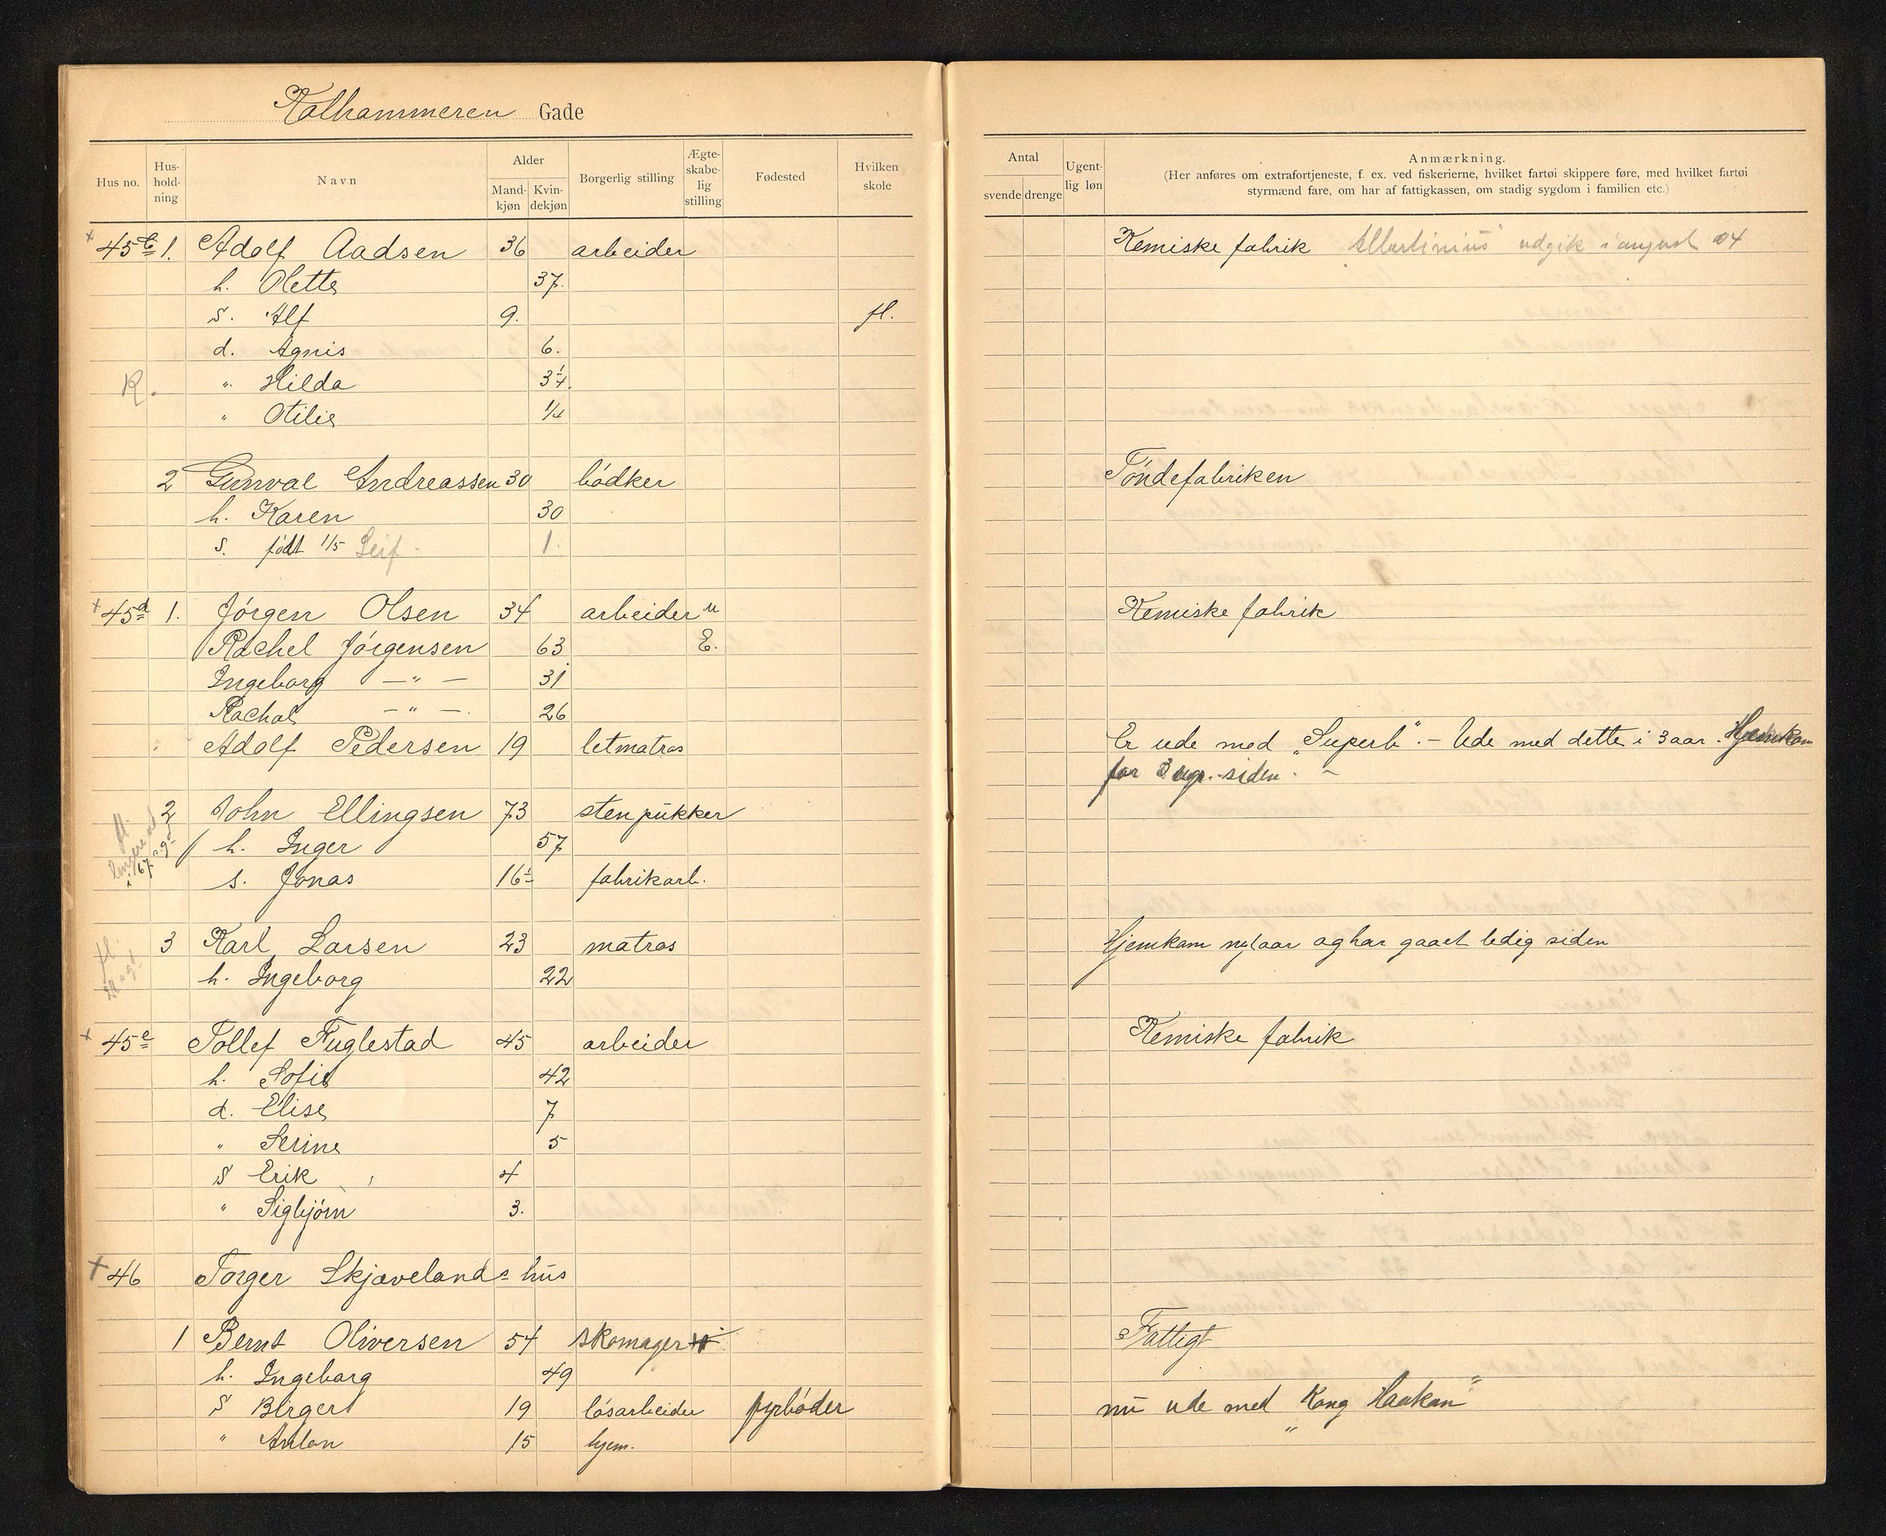 Kalhammeren Gade
Hus no. Hus-hold-ning Navn Alder Mand-kjøn Kvin-dekjøn Borgerlig stilling Ægte-skabe-lig stilling Fødested Hvilken skole
Antal svende drenge Ugent-lig løn Anmærkning.
(Her anføres om extrafortjeneste, f. ex. ved fiskerierne, hvilket fartøi skippere føre, med hvilket fartøi
styrmænd fare, om har af fattigkassen, om stadig sygdom i familien etc.)
+ 45c 1. Adolf Aadsen 36 arbeider Kemiske fabrik udgik i august 04
h. Olette 37.
s. Alf 9. fl.
d. Agnis 6.
R. " Hilda
" Otilie 1/4
2 Gunval Andreassen 30 bødker Tøndefabriken
h. Karen 30
s. født 1/5 Leif 1.
+ 45d 1. Jørgen Olsen 34 arbeider u Kemiske fabrik
Rachel Jørgensen 63 E.
Ingeborg — " — 31
Rachel — " — 26
Adolf Pedersen 19 letmatros Er ude med "Superb". – Ude med dette i 3 aar. Hjemkom
for 3 siden. –
2 John Ellingsen 73 stenpukker
h. Inger 57
s. Jonas 16 fabrikarb.
3 Karl Larsen 23 matros Hjemkom nytaar og har gaaet ledig siden
h. Ingeborg 22
+ 45e Tollef Fuglestad 45 arbeider Kemiske fabrik
h. Sofie 42
d. Elise 7
" Serine 5
s Erik 4
" Sigbjørn 3.
+ 46 Torger Skjævelands hus
1 Bernt Oliversen 54 skomager Fattigt
h. Ingeborg 49
s Birger 19 løsarbeider fyrbøder nu ude med "Kong Haakon"
" Anton 15 hjem.